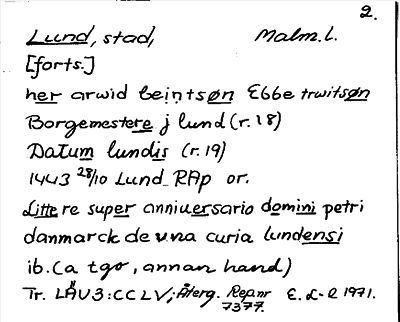 2.
Lund, stad, Malm.l.
[forts.]
her arwid beintsøn Ebbe truvitsøn
Borgemestere j lund (r.18)
Datum lundis (r.19)
1443 28/10 Lund RAp or.
Littere super anniuersario domini petri
danmarck de vna curia lundensi
ib. (a tgo, annan hand)
Tr. LÄU3:CCLV; Återg. Rep.nr 7377. E. L-R 1971.